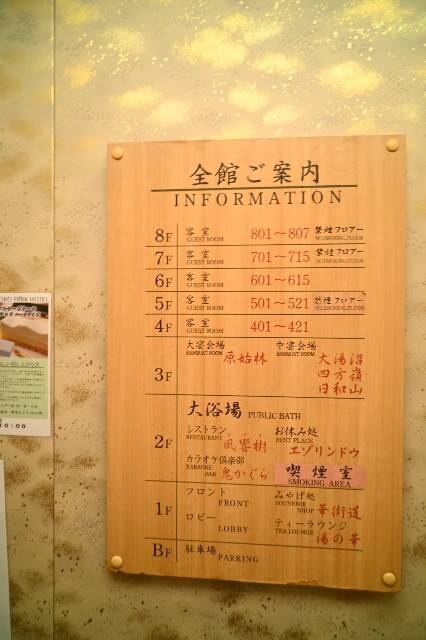 全館ご案内
INFORMATION
8F 客室 GUEST ROOM 801～807 禁煙フロアー NO SMOKING FLOOR
7F 客室 GUEST ROOM 701～715 禁煙フロアー NO SMOKING FLOOR
6F 客室 GUEST ROOM 601～615
5F 客室 GUEST ROOM 501～521 禁煙フロアー NO SMOKING FLOOR
4F 客室 GUEST ROOM 401～421
3F 大宴会場 BANQUET ROOM 原始林
中宴会場 BANQUET ROOM 大湯沼
四方嶺
日和山
2F 大浴場 PUBLIC BATH
レストラン RESTAURANT 風響樹
お休み処 RENT PLACE エゾリンドウ
カラオケ倶楽部 KARAOKE BAR 鬼かぐら
喫煙室
SMOKING AREA
1F フロント FRONT
みやげ処 SOUVENIR SHOP 華街道
ロビー LOBBY
ティーラウンジ TEA LOUNGE 湯の華
BF 駐車場 PARKING
PARK HOTEL